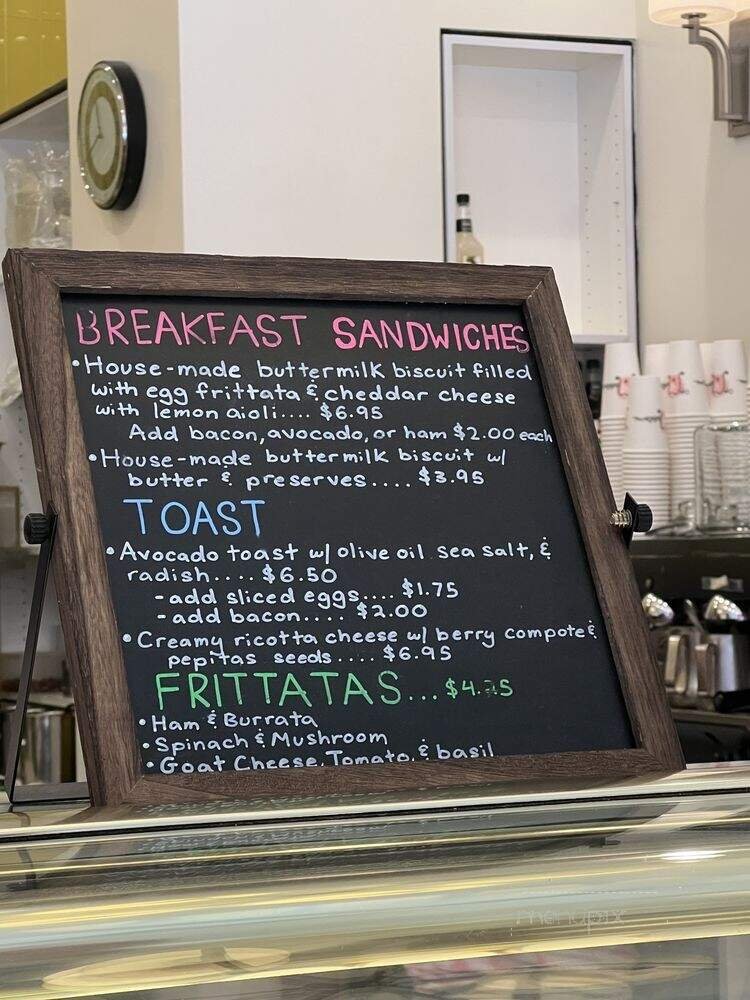 BREAKFAST SANDWICHES
• House-made buttermilk biscuit filled
with egg frittata & cheddar cheese
with lemon aioli.... $6.95
Add bacon, avocado, or ham $2.00 each
• House-made buttermilk biscuit w/
butter & preserves.... $3.95
TOAST
• Avocado toast w/ olive oil sea salt, &
radish.... $6.50
- add sliced eggs.... $1.75
- add bacon.... $2.00
• Creamy ricotta cheese w/ berry compote &
pepitas seeds.... $6.95
FRITTATAS...
• Ham & Burrata
• Spinach & Mushroom
• Goat Cheese, Tomato, & basil
menupix